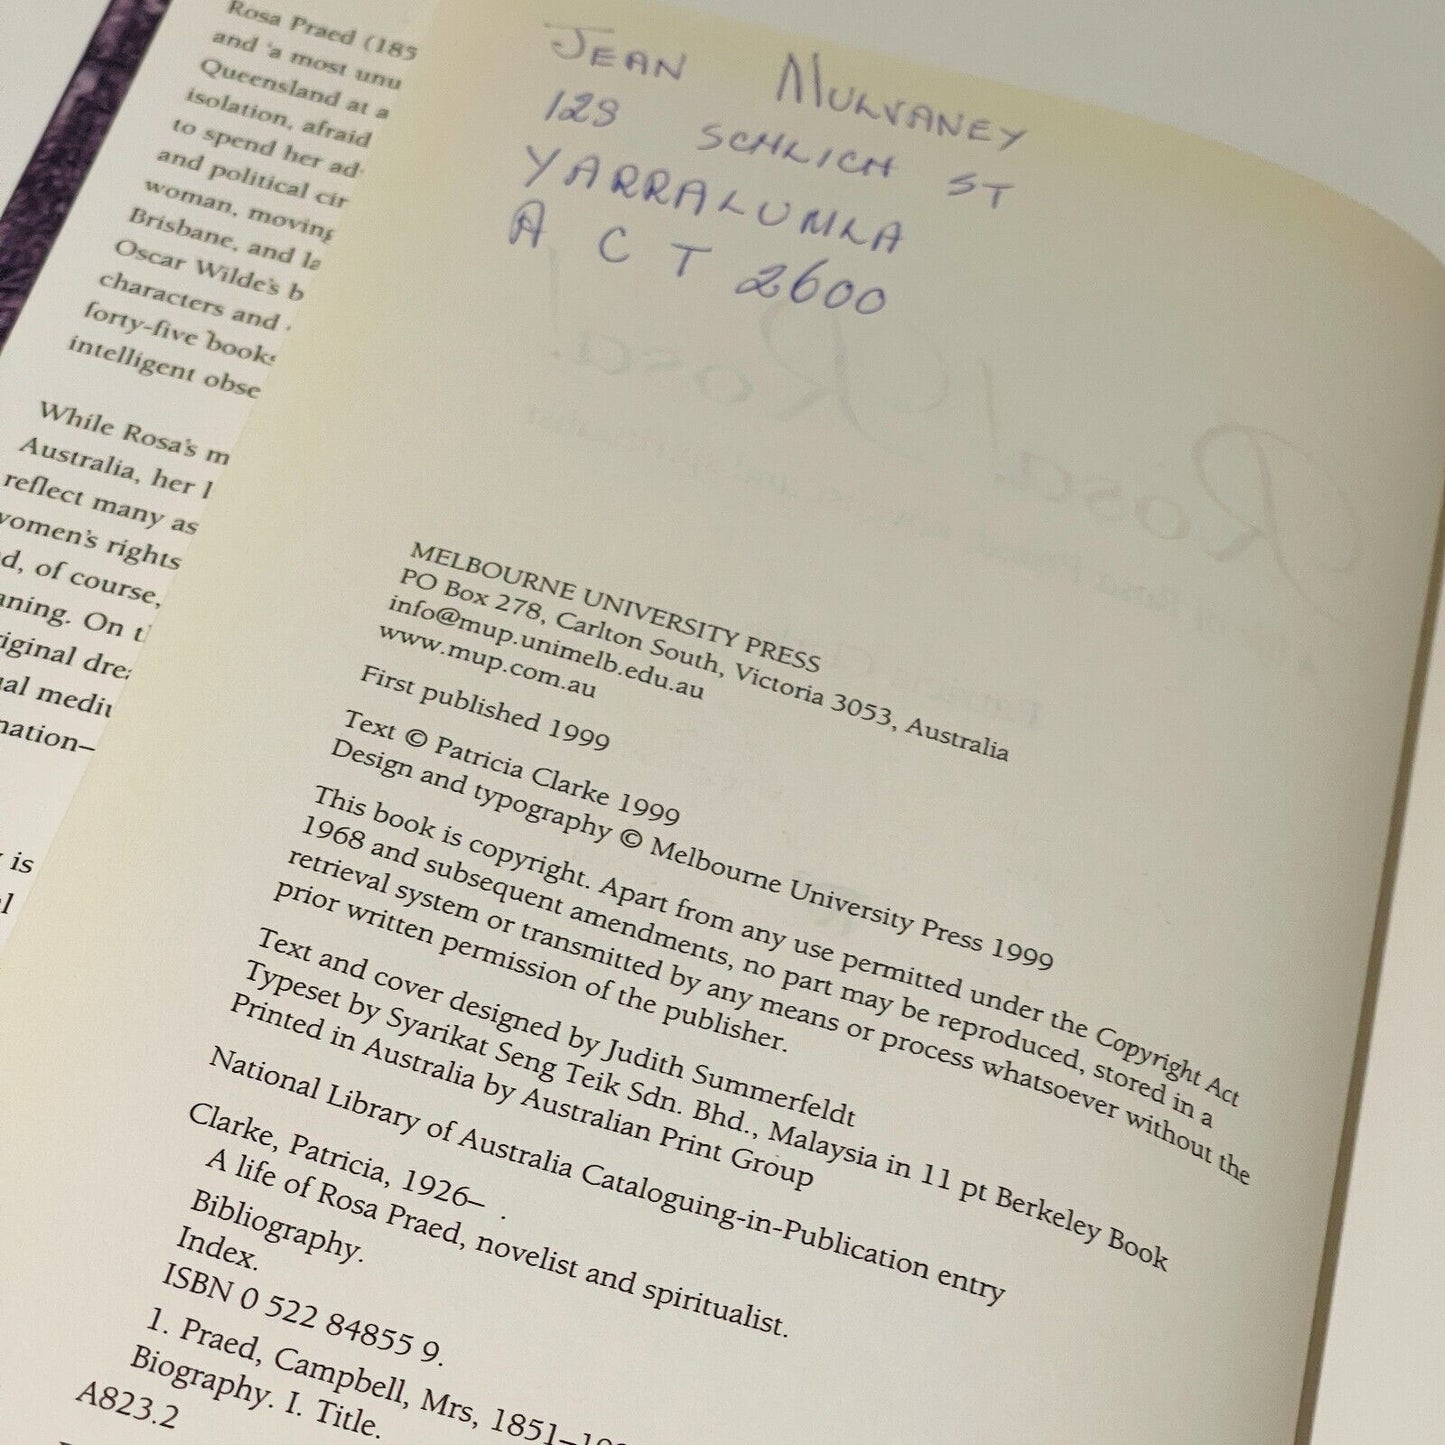 Rosa Praed (185
and 'a most unu
Queensland at a
isolation, afraid
to spend her ad
and political cir
woman, moving
Brisbane, and la
Oscar Wilde's b
characters and
forty-five books
intelligent obse
While Rosa's m
Australia, her l
reflect many as
women's rights
d, of course,
aning. On t
iginal drea
al mediu
nation–
is
al
JEAN MULVANEY
128 SCHLICH ST
YARRALUMLA
A C T 2600
Rosa! Rosa!
MELBOURNE UNIVERSITY PRESS
PO Box 278, Carlton South, Victoria 3053, Australia
info@mup.unimelb.edu.au
www.mup.com.au
First published 1999
Text © Patricia Clarke 1999
Design and typography © Melbourne University Press 1999
This book is copyright. Apart from any use permitted under the Copyright Act
1968 and subsequent amendments, no part may be reproduced, stored in a
retrieval system or transmitted by any means or process whatsoever without the
prior written permission of the publisher.
Text and cover designed by Judith Summerfeldt
Typeset by Syarikat Seng Teik Sdn. Bhd., Malaysia in 11 pt Berkeley Book
Printed in Australia by Australian Print Group
National Library of Australia Cataloguing-in-Publication entry
Clarke, Patricia, 1926– .
A life of Rosa Praed, novelist and spiritualist.
Bibliography.
Index.
ISBN 0 522 84855 9.
1. Praed, Campbell, Mrs, 1851–19
Biography. I. Title.
A823.2